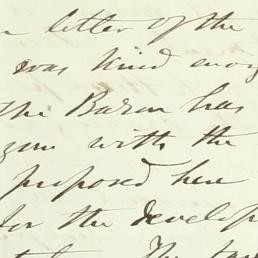 letter of the
was kind enoug
the Baron has
with the
proposed here
for the develop
The